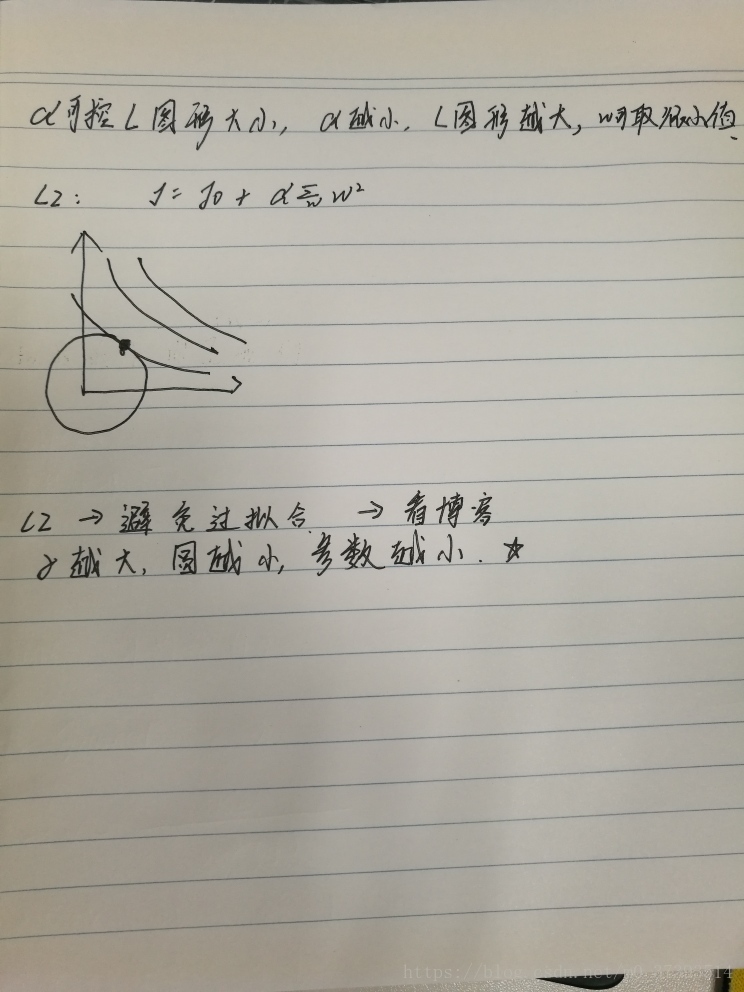 α可控L图形大小, α越小, L图形越大, w可取很小值.
L2: J = J0 + α∑w w²
L2 → 避免过拟合 → 看博客
γ越大, 圆越小, 参数越小. ☆
https://blog.csdn.net/